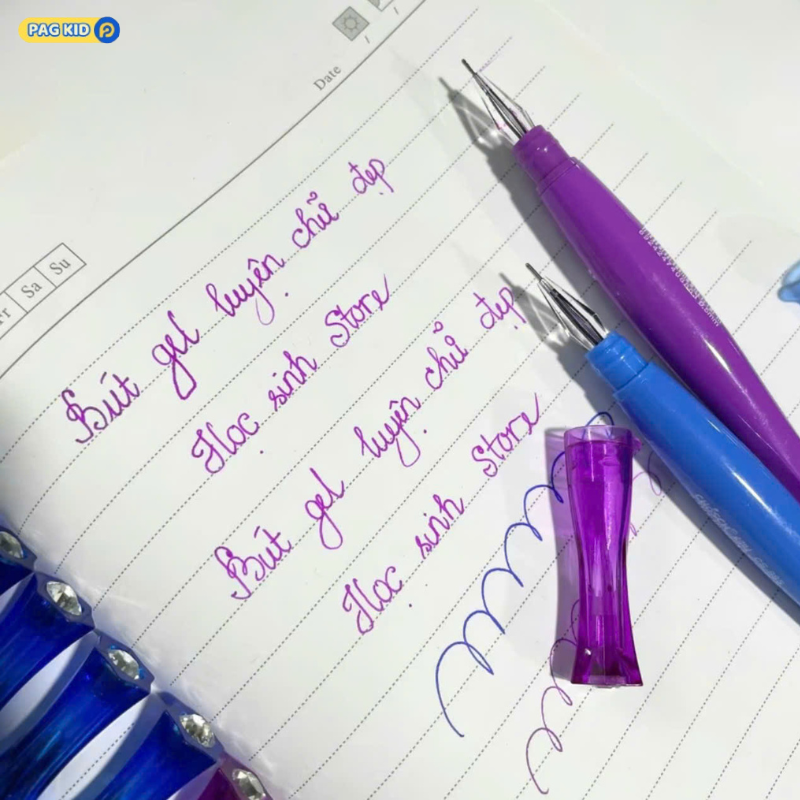 PAG KID P
Date / /
Fr Sa Su
Bút gel luyện chữ đẹp
Học sinh Store
Bút gel luyện chữ đẹp
Học sinh Store